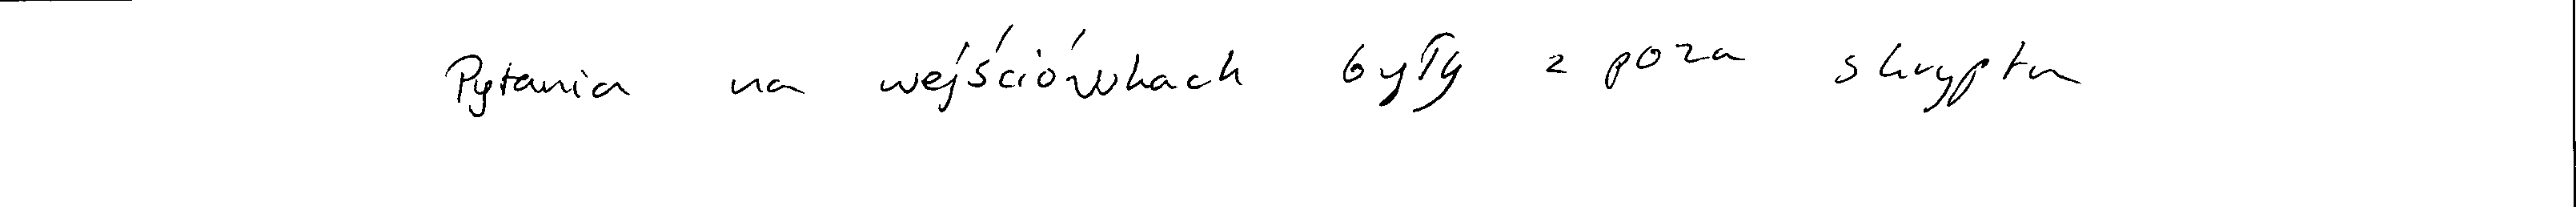 Pytania na wejściówkach były z poza skryptu